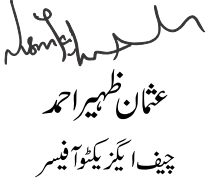 عثمان ظہیر احمد
چیف ایگزیکٹو آفیسر